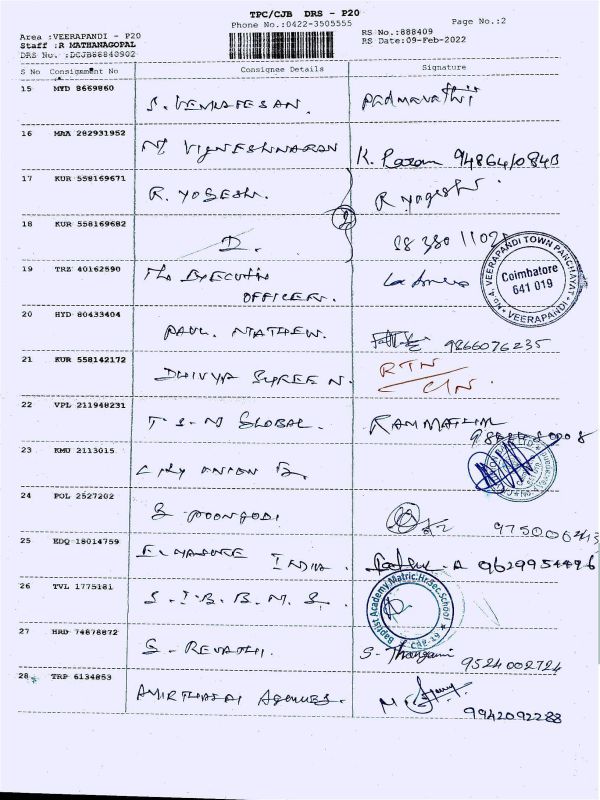 TPC/CJB DRS - P20
Phone No.:0422-3505555
Page No.:2
Area :VEERAPANDI - P20
RS No.:888409
Staff :R MATHANAGOPAL
RS Date:09-Feb-2022
DRS No. :DCJB88840902
S No Consignment No Consignee Details Signature
15 MYD 8669860 S. VENKATESAN. Padmavathi
16 MAA 282931952 VIGNESHWARAN K. 9486410843
17 KUR 558169671 R. YOGESH. R yogesh
18 KUR 558169682 D.
19 TRZ 40162590 The EXECUTIVE
OFFICER.
VEERAPANDI TOWN PANCHAYAT
Coimbatore
641 019
No.4, VEERAPANDI
20 HYD 80433404 PAUL MATHEW. 9866076235
21 KUR 558142172 DHIVYA SHREE N. RTN
22 VPL 211948231 T S N GLOBAL.
23 KMU 2113015 CITY UNION B.
24 POL 2527202 S POONGODI
25 EDQ 18014759 INDIA. 9629954496
26 TVL 1775181 S. I. B. B. M. S.
Baptist Academy Matric.Hr.Sec.School
CBE-19
27 HRD 74878872 S. REVATHI. S- Thangami 9524002724
28 TRP 6134853 AMIRTHASAI AGENCIES. 9942092288